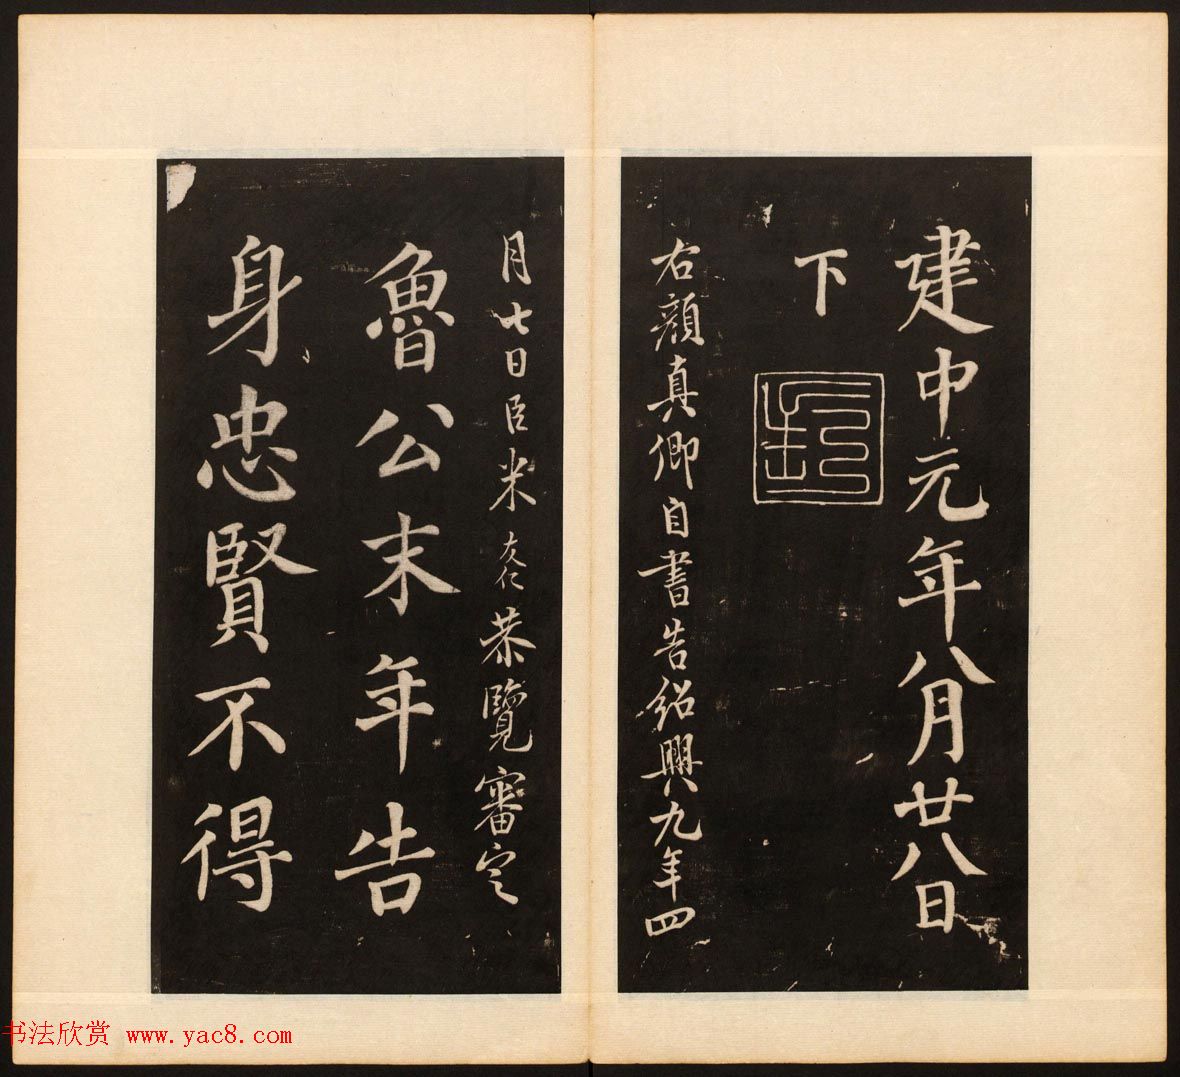 建中元年八月廿八日
下
右顔真卿自書告紹興九年四
月七日臣米友仁恭覽審定
魯公末年告
身忠賢不得
书法欣赏 www.yac8.com